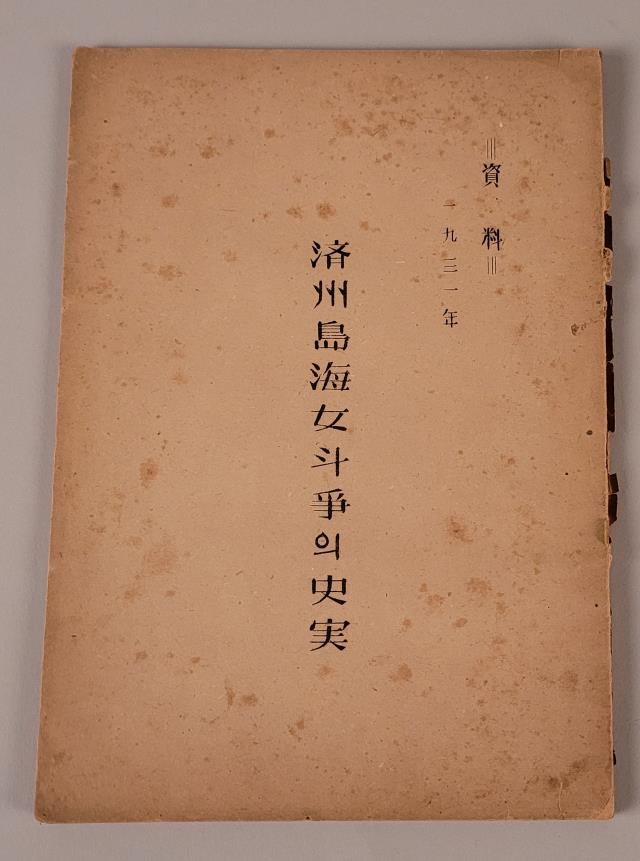 =資料=
一九三一年
済州島海女斗爭의史実